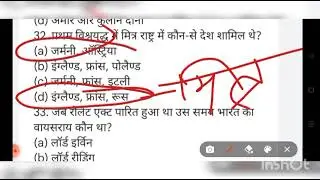 (d) अमीर और कुलीन दोनों
32. प्रथम विश्वयुद्ध में मित्र राष्ट्र में कौन-से देश शामिल थे?
(a) जर्मनी, ऑस्ट्रिया
(b) इंग्लैण्ड, फ्रांस, पोलैण्ड
(c) जर्मनी, फ्रांस, इटली
(d) इंग्लैण्ड, फ्रांस, रूस
33. जब रौलेट एक्ट पारित हुआ था उस समय भारत का
वायसराय कौन था?
(a) लॉर्ड इर्विन
(b) लॉर्ड रीडिंग
InShOt